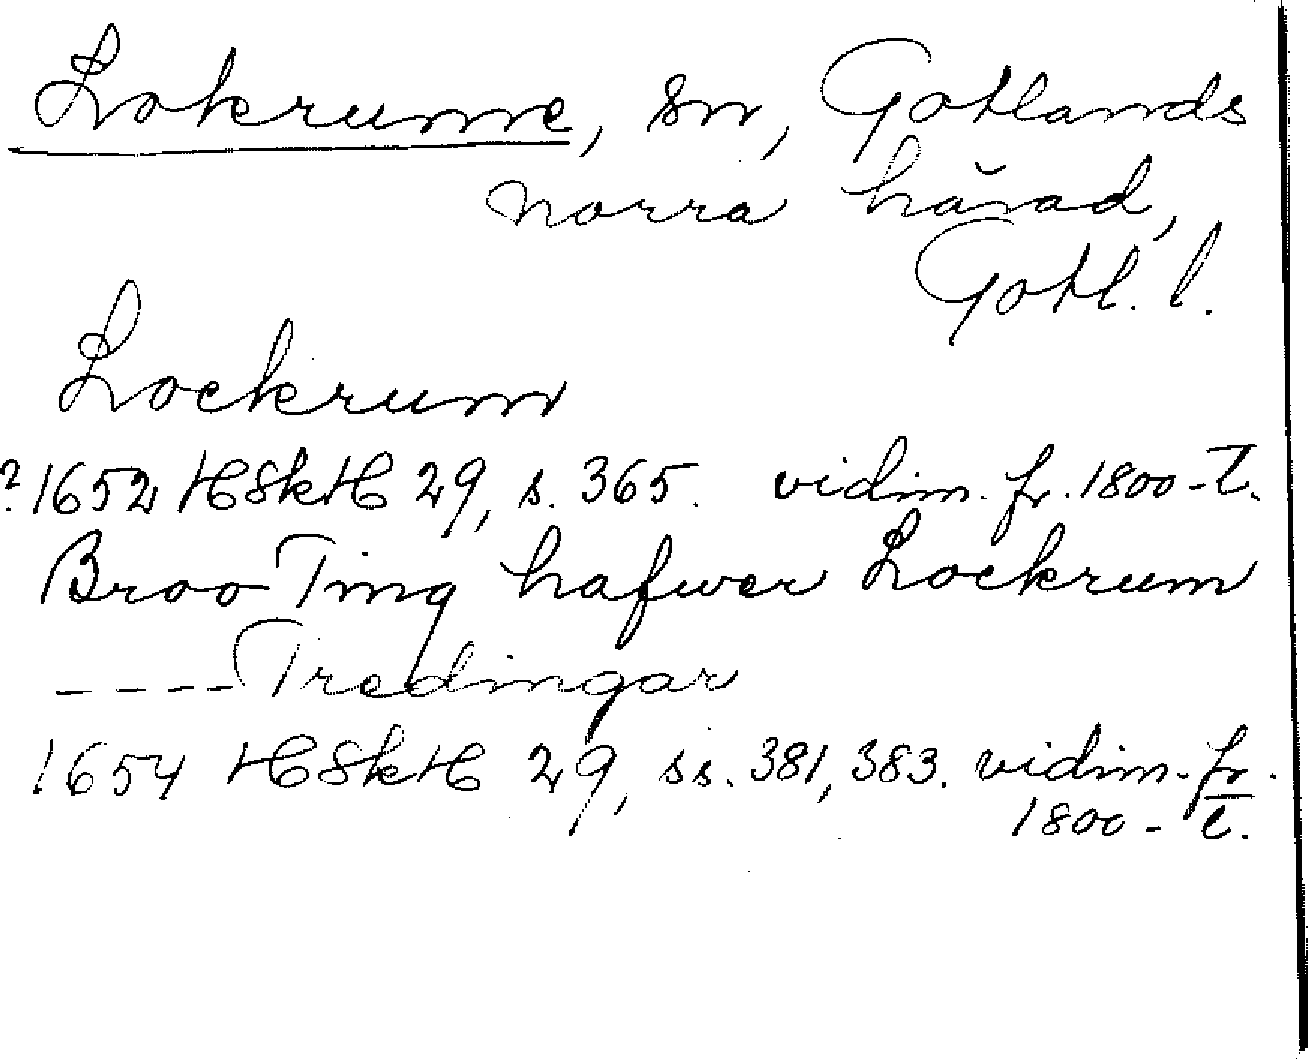 Lokrume, sn, Gotlands
norra härad,
Gotl. l.
Lockrum
? 1652 HSkH 29, s. 365. vidim. fr. 1800-t.
Broo Ting hafwer Lockrum
----Tredingar
1654 HSkH 29, ss. 381, 383. vidim. fr.
1800-t.